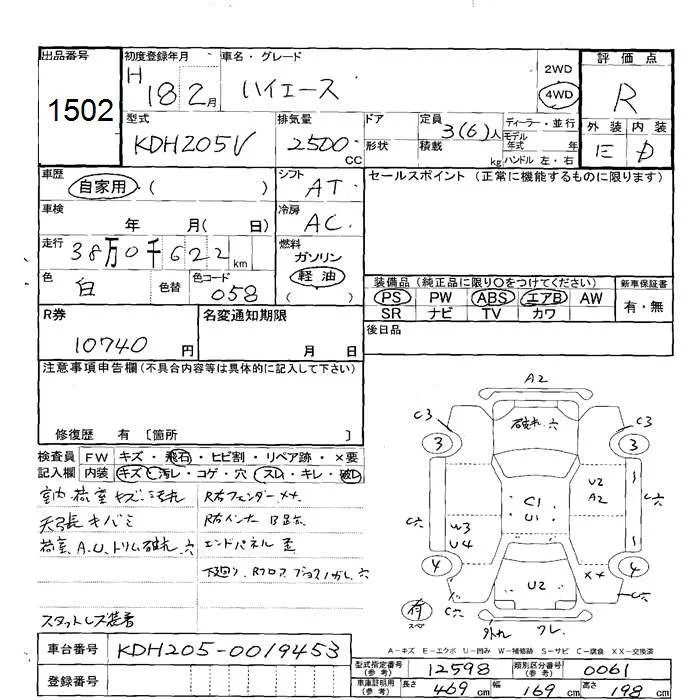 出品番号
1502
初度登録年月
H 18 2月
車名・グレード
ハイエース
2WD
4WD
評価点
R
外装 内装
E D
型式
KDH205V
排気量
2500
CC
ドア
形状
定員
3(6)人
積載
kg
ディーラー・並行
モデル
年式 年
ハンドル 左・右
車歴
自家用・( )
シフト
AT
セールスポイント (正常に機能するものに限ります)
車検
年 月( 日)
冷房
AC
走行
38万0千622km
燃料
ガソリン
軽油
( )
色
白
色替
色コード
058
装備品 (純正品に限り○をつけてください)
新車保証書
PS PW ABS エアB AW
SR ナビ TV カワ
有・無
R券
10740 円
名変通知期限
月 日
後日品
注意事項申告欄 (不具合内容等は具体的に記入して下さい)
修復歴 有 〔箇所 〕
検査員
記入欄
FW キズ・飛石・ヒビ割・リペア跡・×要
内装 キズ・汚レ・コゲ・穴・スレ・キレ・破レ
室内荷室キズ汚れ
R右フェンダー××
天張キバミ
R右インナー
荷室A.U.トリム破れ.穴
エンドパネル歪
下廻り
穴
スタットレス装着
車台番号
KDH205-0019453
登録番号
A2
C3
C3
3
3
破れ.穴
U2
A2
C1
U1
C穴
C穴
W3
U4
4
4
U2
××
C穴
C穴
有
スペ
外れ
ワレ
A-キズ E-エクボ U-凹み W-補修跡 S-サビ C-腐食 XX-交換済
型式指定番号
(参考)
12598
類別区分番号
(参考)
0061
車庫証明用
(参考)
長さ 469 cm 幅 169 cm 高さ 198 cm